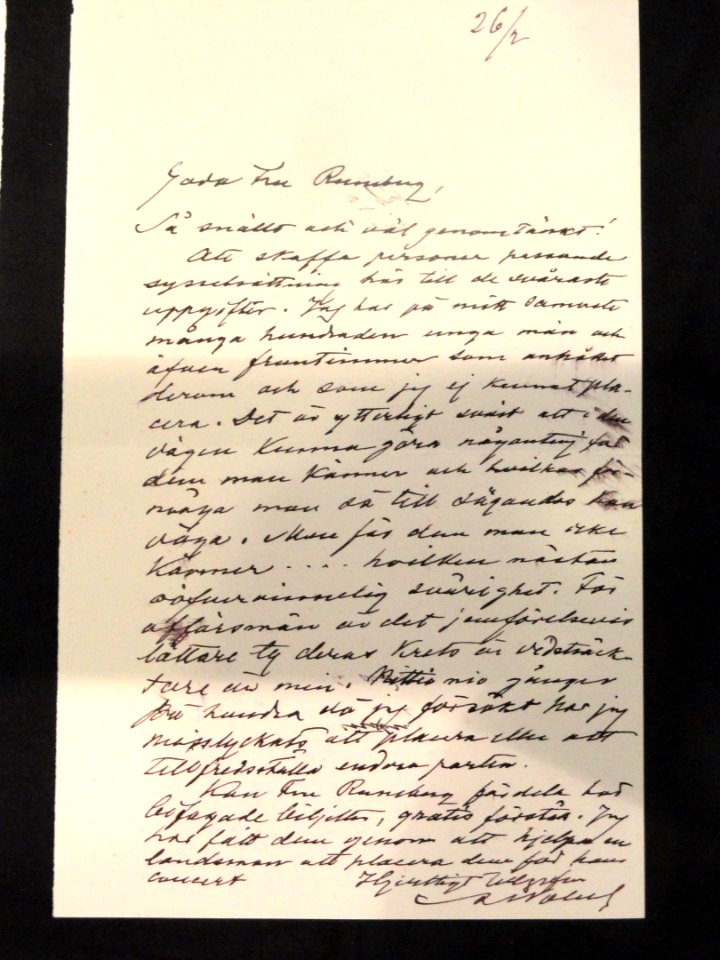 26/2
Goda Fru Runeberg,
Så snällt och väl genomtänkt!
Att skaffa personer passande
sysselsättning hör till de svåraste
uppgifter. Jag har på mitt samvete
många hundraden unga män och
äfven fruntimmer som anhållit
derom och som jag ej kunnat pla-
cera. Det är ytterligt svårt att i den
vägen kunna göra någonting för
dem man känner och hvilkas för-
måga man så till sägandes kan
väga. Men för dem man icke
känner . . . . hvilken nästan
oöfvervinnelig svårighet. För
affärsmän är det jemförelsevis
lättare ty deras krets är vidsträck-
tare än min. Nittio nio gånger
på hundra då jag försökt har jag
misslyckats att placera eller att
tillfredsställa endera parten.
Kan Fru Runeberg fördela här
bifogade biljetter, gratis förstås. Jag
har fått dem genom att hjelpa en
landsman att placera dem för hans
concert Hjertligt
A. Nobel